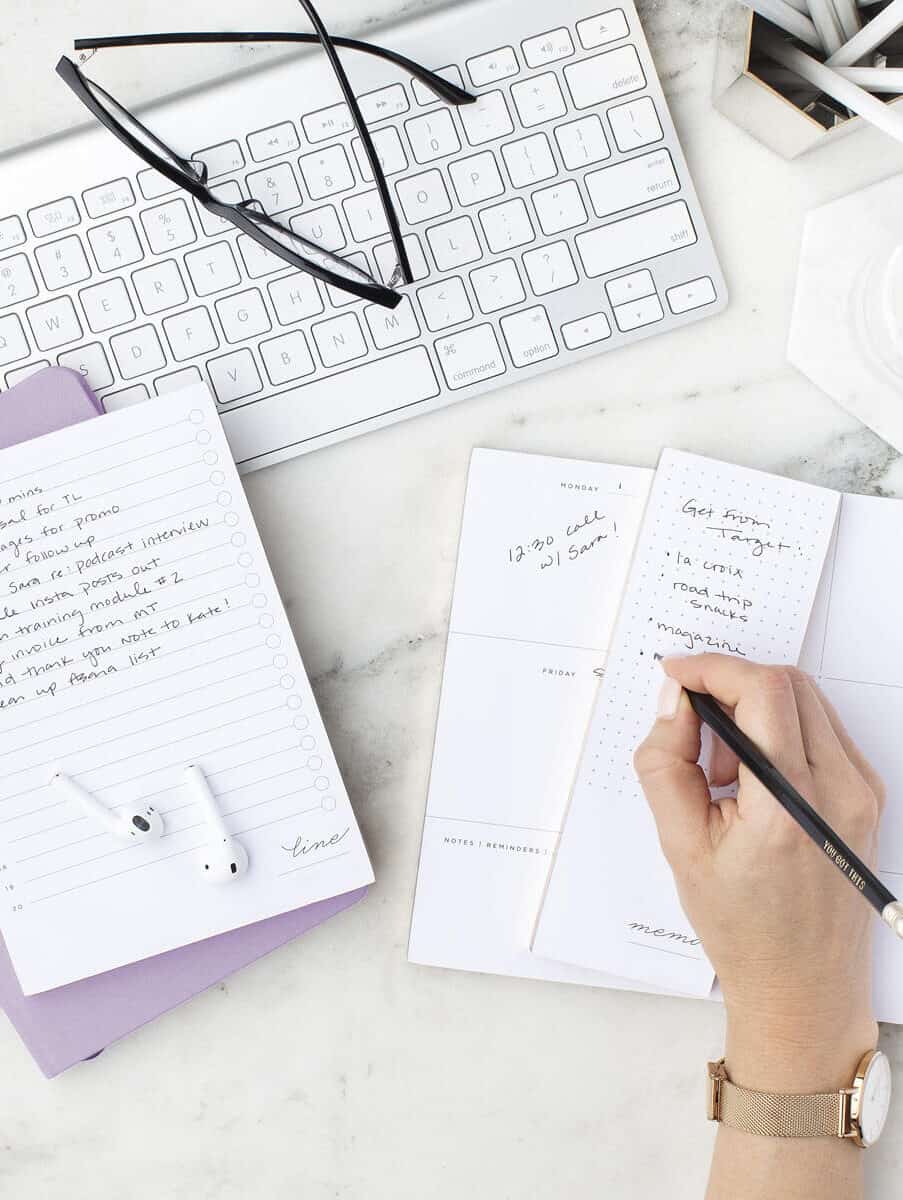 delete
return
enter
shift
command
option
mins
for TL
for promo
follow up
Sara re: Podcast interview
Insta posts out
training module #2
invoice from MT
thank you note to Kate!
up Asana list
18
19
20
line
MONDAY 1
12:30 call
w/ Sara!
FRIDAY
NOTES | REMINDERS
Get from
Target:
• la croix
• road trip
snacks
• magazine
•
memo
YOU GOT THIS